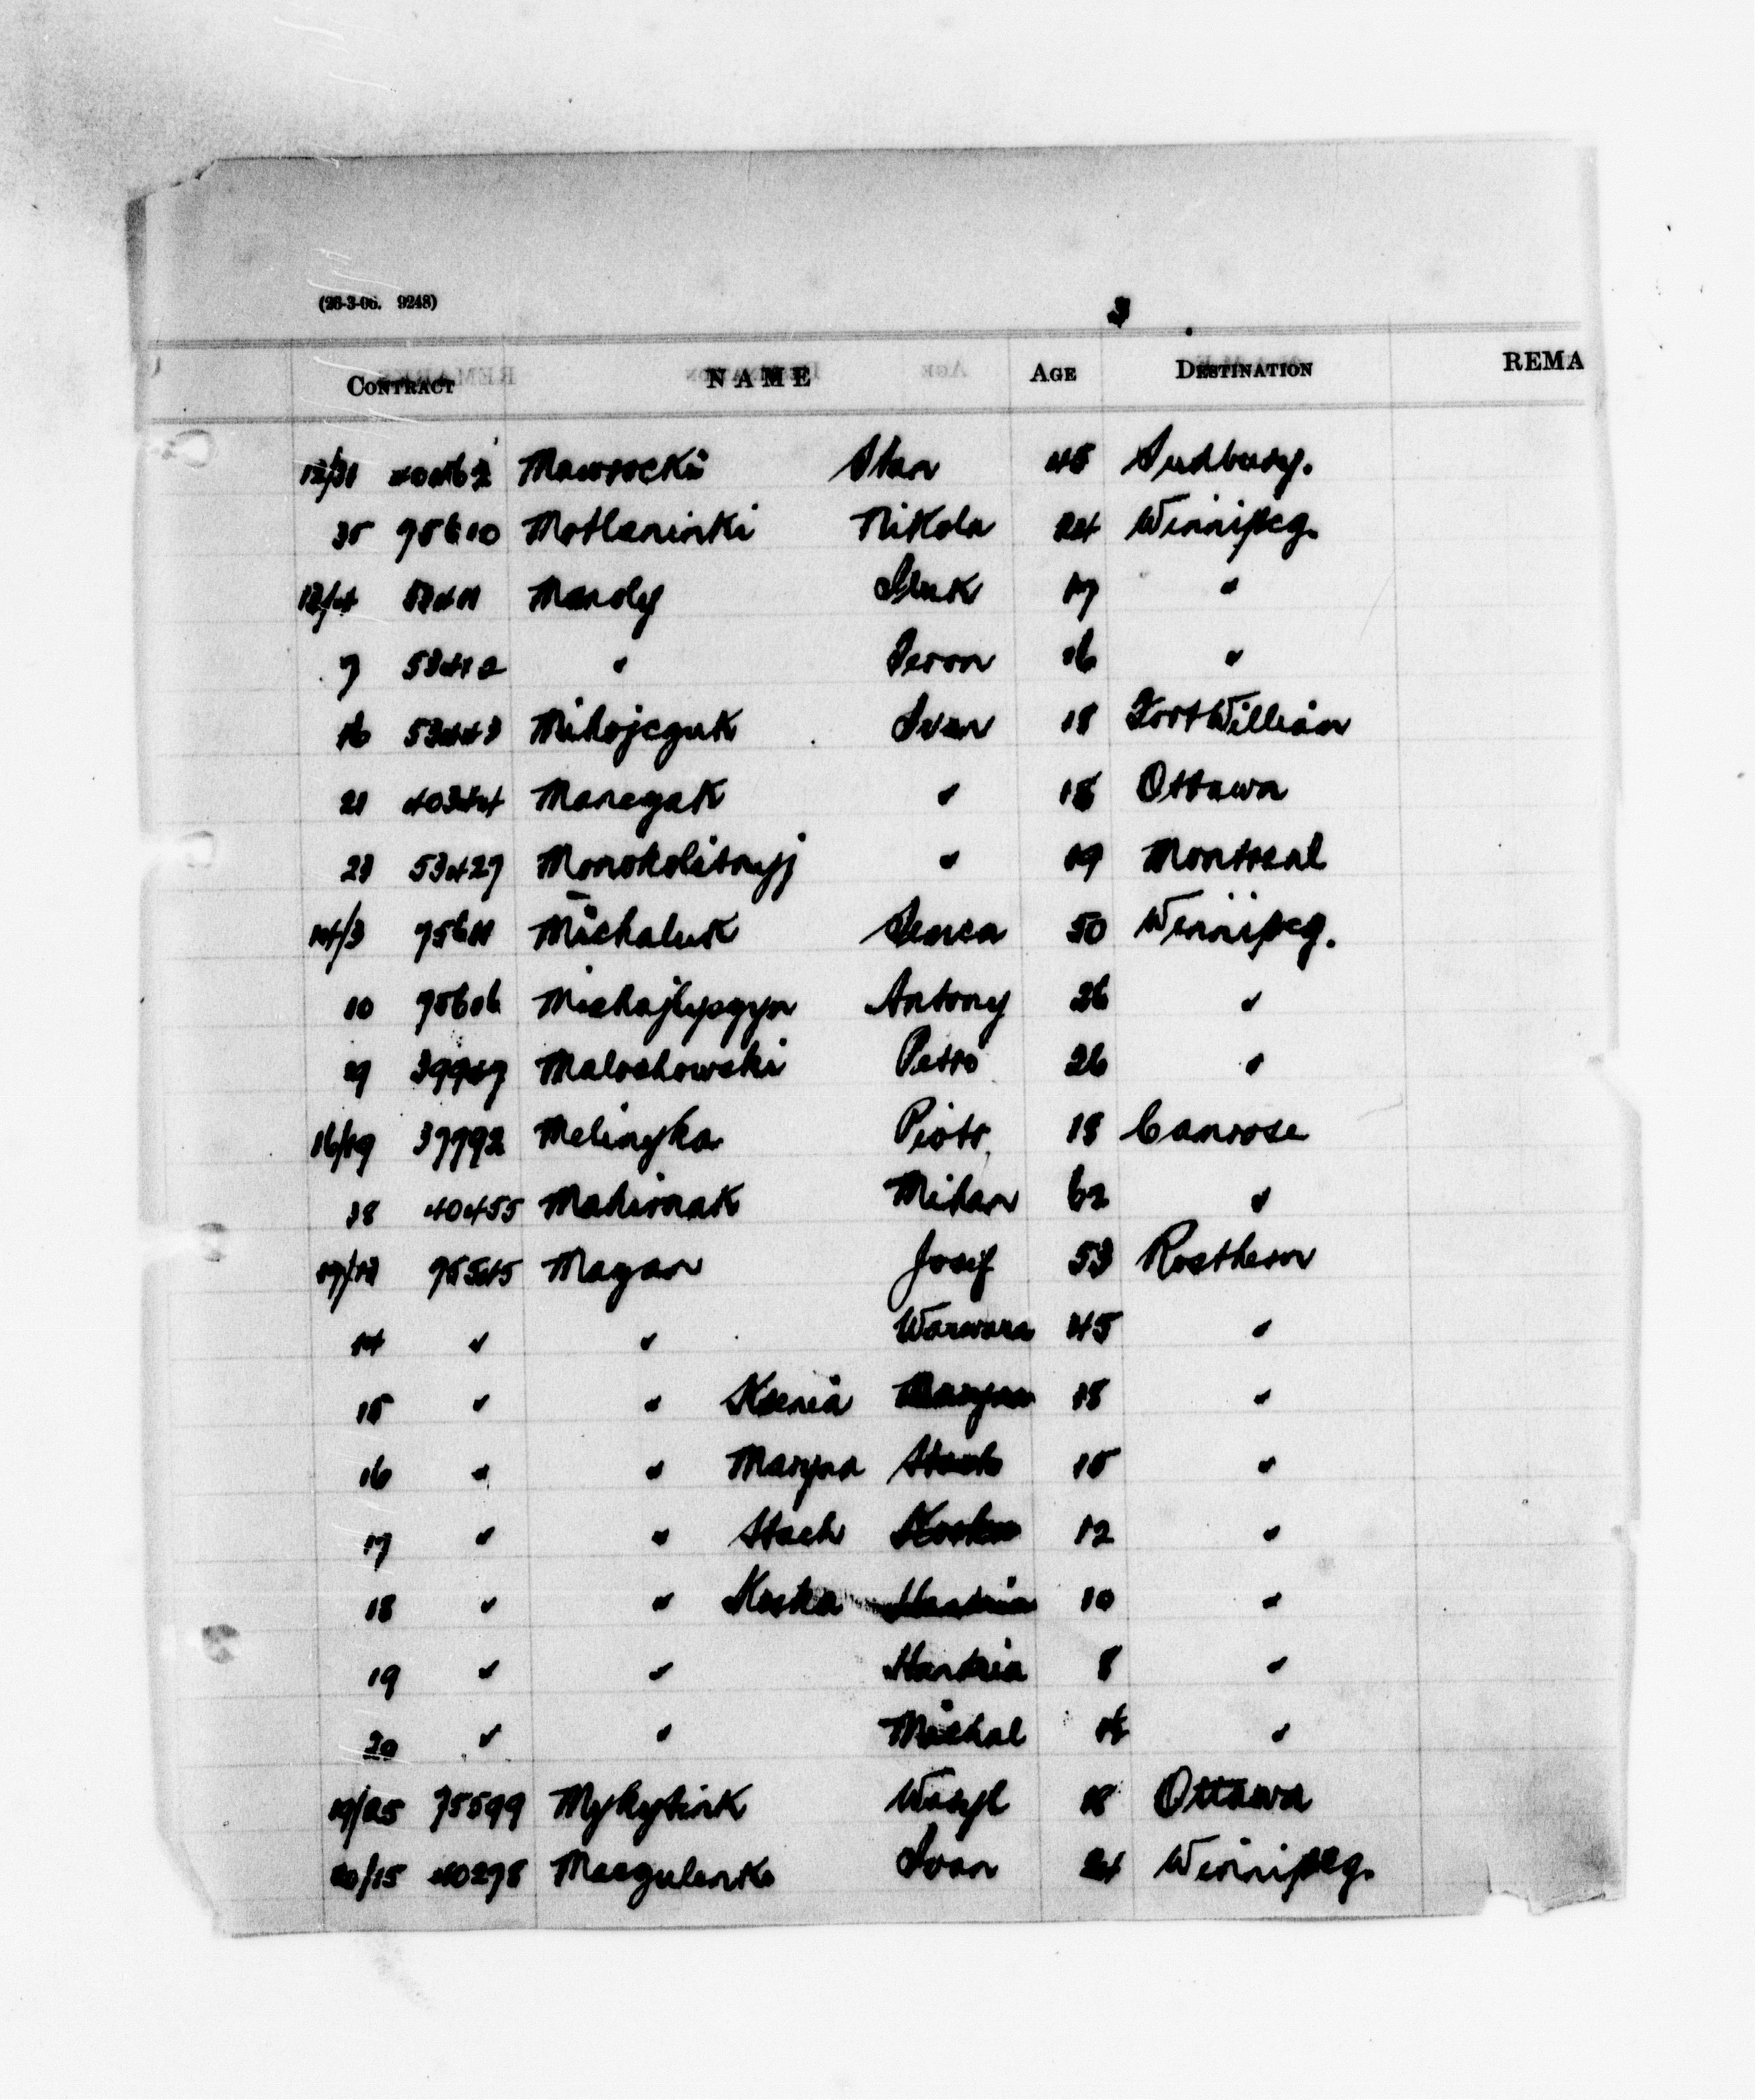 (26-3-06. 9248)
3
CONTRACT NAME AGE DESTINATION REMA
12/31 Mawrocki Stan 45 Sudbury.
35 95610 Motleninki Nikola 24 Winnipeg.
13/4 53411 Mandy Iluk 17 "
7 53412 " Iwon 16 "
16 53443 Mikojczuk Iwan 18 Fort William
21 40344 Manczak " 18 Ottawa
23 53427 Monokolitnyj " 19 Montreal
14/3 95611 Michaluk Senca 50 Winnipeg.
10 95606 Michajlyszyn Antony 26 "
29 Malochowski Petro 26 "
16/19 37792 Melinyka Piotr. 18 Camrose
38 40455 Mahirnak Mihan 62 "
17/13 95545 Mazan Josif 53 Rosthern
14 " " Warwara 45 "
15 " " Ksenia Maryna 18 "
16 " " Maryna Stach 15 "
17 " " Stach Koska 12 "
18 " " Koska Handzia 10 "
19 " " Handzia 8 "
20 " " Michal "
19/25 75599 Mykytiuk Wasyl 18 Ottawa
20/15 40278 Ivan 24 Winnipeg.